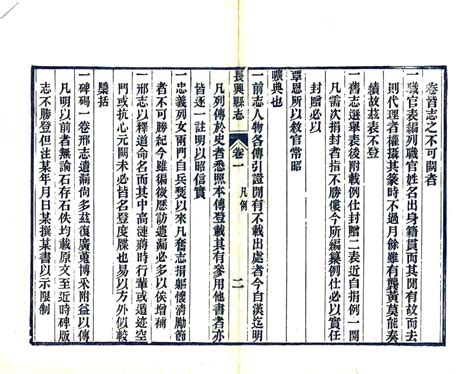 卷首志之不可闕者
一職官表編列職官姓名出身籍貫而其間有故而去
則代理者權攝其篆時不過月餘雖有龔黃莫能奏
績故茲表不登
一舊志選舉表後附載例仕封贈二表近自捐例一開
凡需次捐封者指不勝僂今所編纂例仕必以實任
封贈必以
覃恩所以敘官常昭
曠典也
一前志人物各傳引證間有不載出處者今自漢迄明
長興縣志 卷一 凡例 二
凡列傳於史者悉照本傳登載其有參用他書者亦
皆逐一註明以昭信實
一忠義列女兩門自兵燹以來凡奮志捐軀懷清勵節
者不可勝紀今雖徧徵歷訪遺漏必多以俟增補
一邢志以釋道命名而其中高漣蔣時行輩或道空
門或抗心元未必皆名登度牒也易以方外似較
檃括
一碑碣一卷邢志遺漏尚多茲復廣蒐博采附益以傳
凡明以前者無論石存石佚均載原文至近時碑版
志不勝登但注某年月日某撰某書以示限制